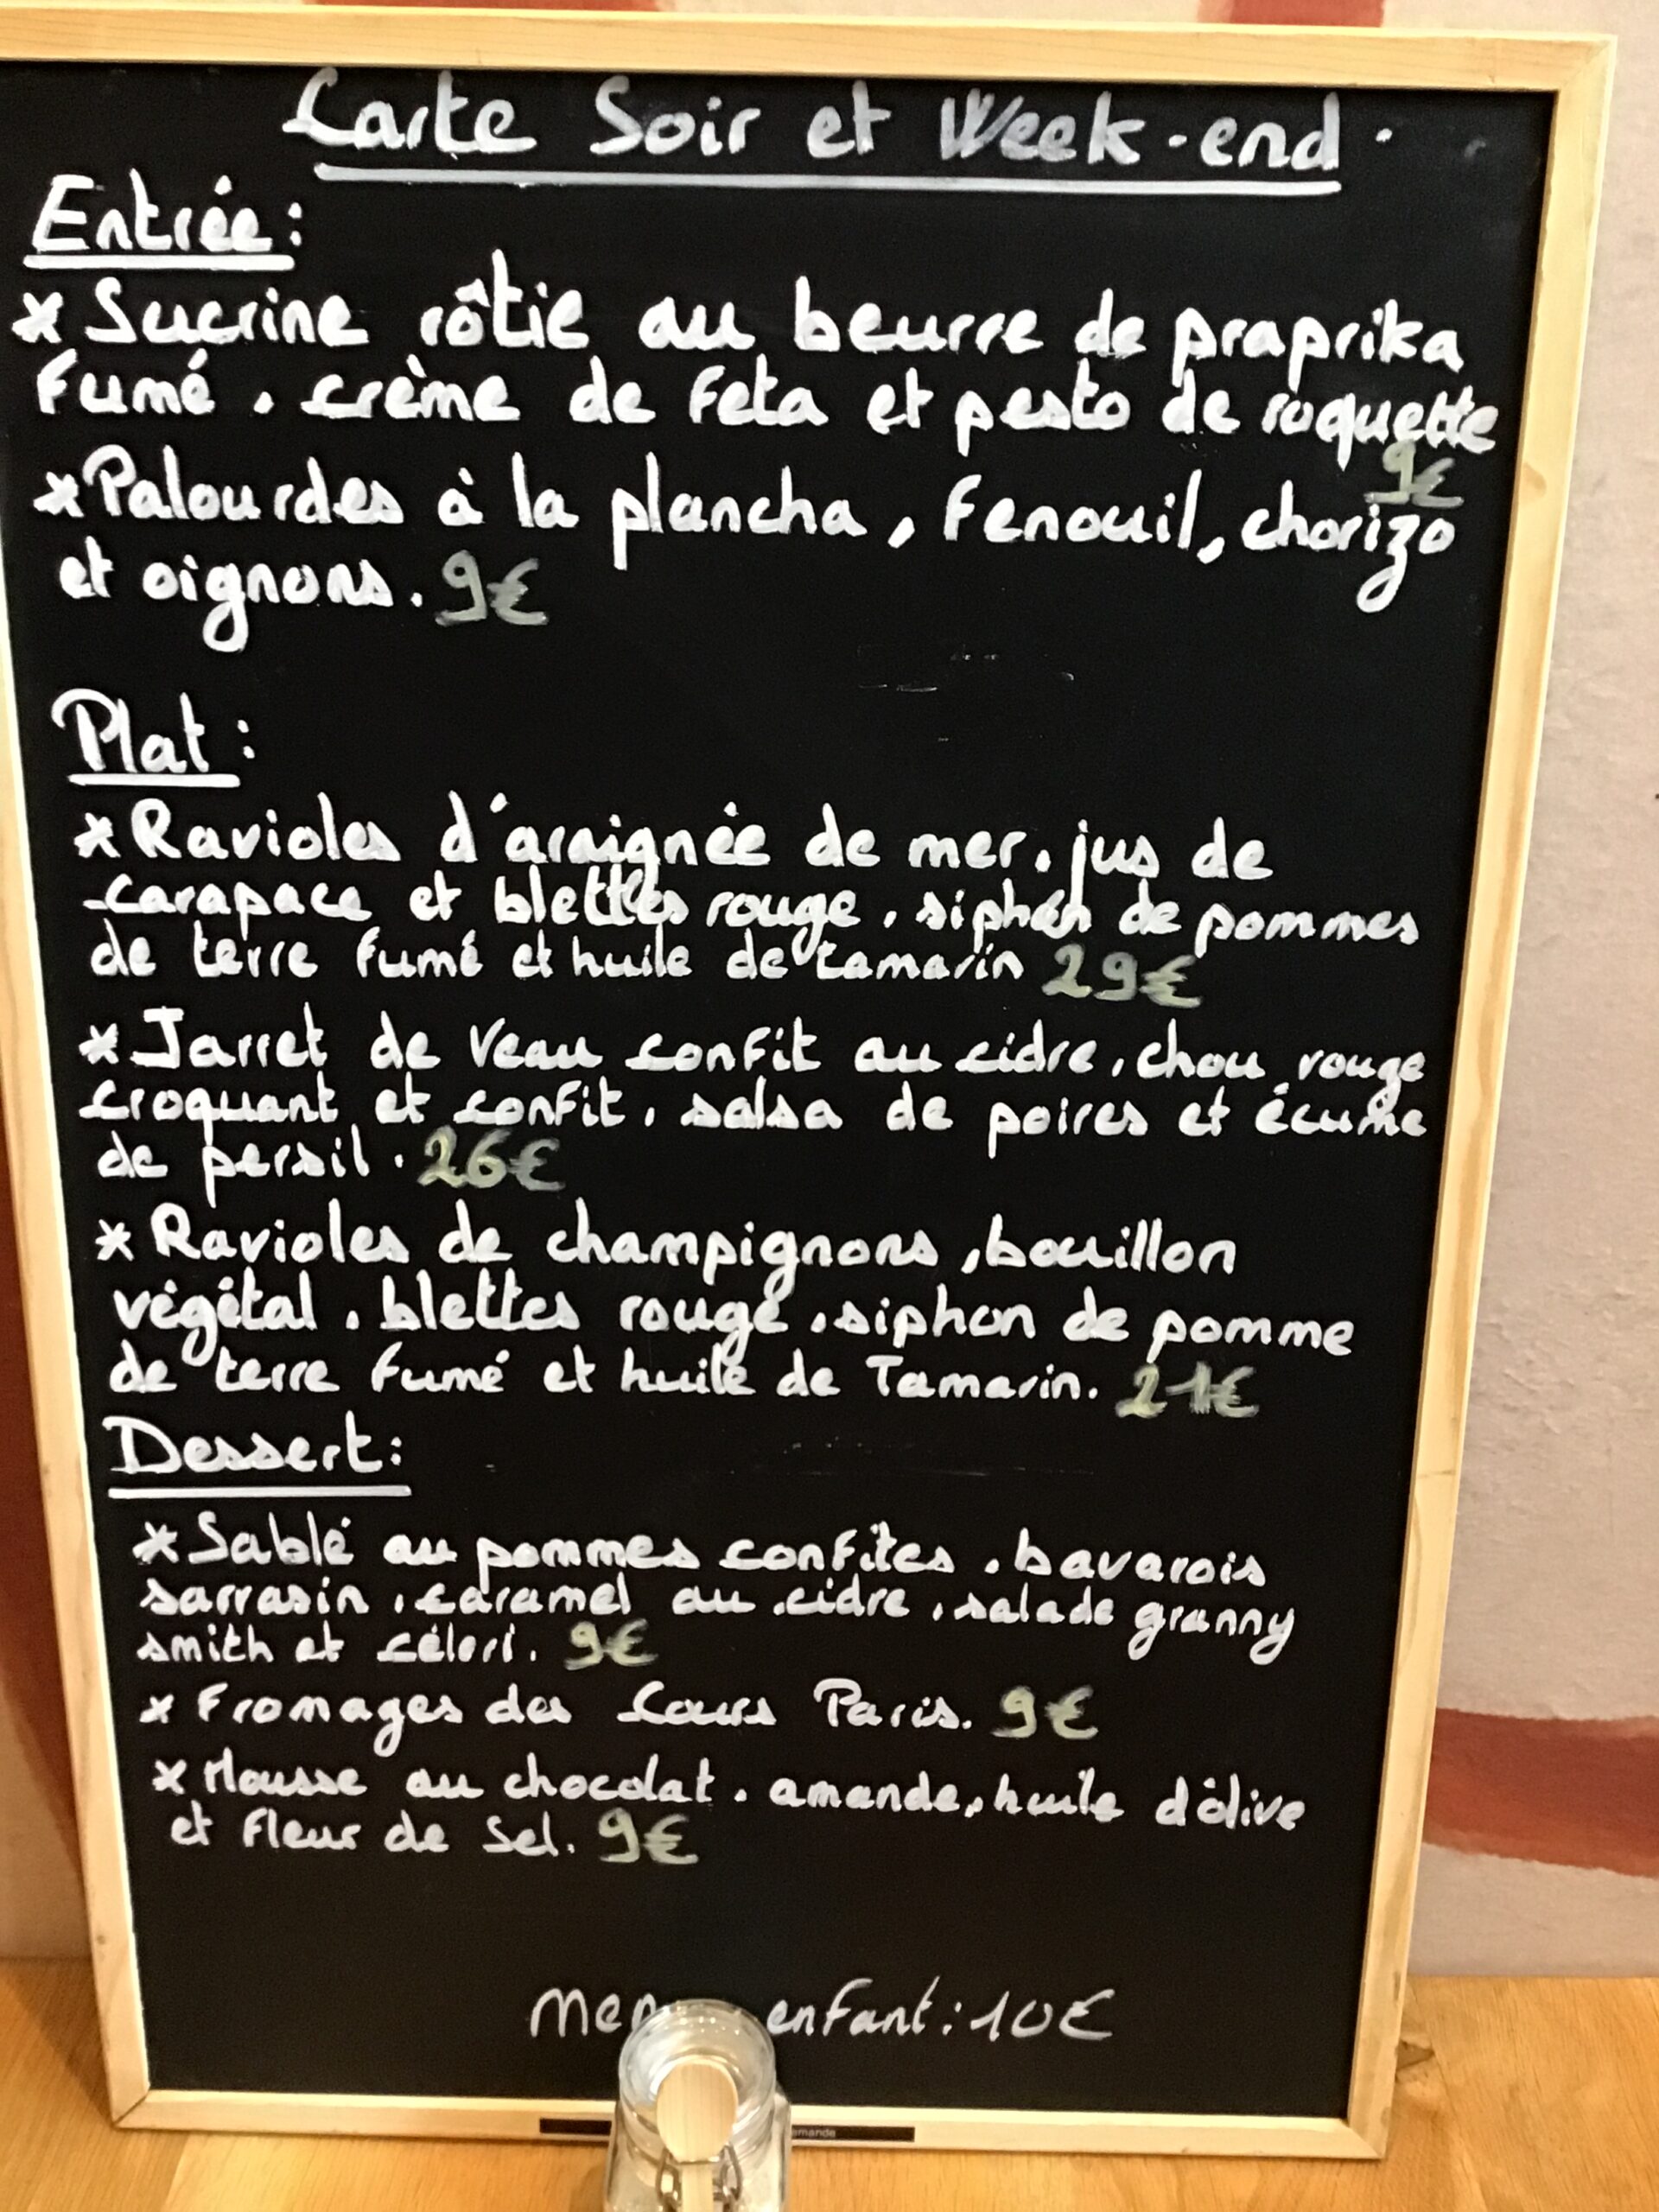 Carte Soir et Week-end.
Entrée:
* Sucrine rôtie au beurre de praprika
fumé. crème de feta et pesto de roquette
9€
* Palourdes à la plancha, fenouil, chorizo
et oignons. 9€
Plat:
* Ravioles d'araignée de mer. jus de
carapace et blettes rouge. siphon de pommes
de terre fumé et huile de tamarin 29€
* Jarret de veau confit au cidre, chou rouge
croquant et confit, salsa de poires et écume
de persil. 26€
* Ravioles de champignons, bouillon
végétal. blettes rouge. siphon de pomme
de terre fumé et huile de Tamarin. 21€
Dessert:
* Sablé au pommes confites. bavarois
sarrasin, caramel au cidre, salade granny
smith et céleri. 9€
* Fromages des Cours Paris. 9€
* Mousse au chocolat. amande, huile d'olive
et fleur de sel. 9€
enfant: 10€